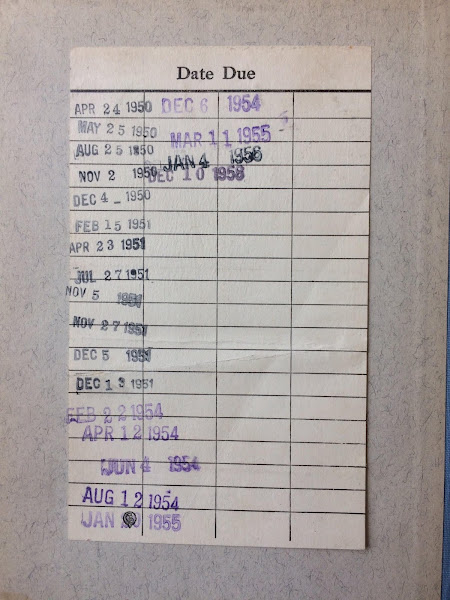 Date Due
APR 24 1950
MAY 25 1950
AUG 25 1950
NOV 2 1950
DEC 4 - 1950
FEB 15 1951
APR 23 1951
JUL 27 1951
NOV 5 1951
NOV 27 1951
DEC 5 1951
DEC 13 1951
FEB 22 1954
APR 12 1954
JUN 4 1954
AUG 12 1954
JAN 1955
DEC 6 1954
MAR 11 1955
JAN 4
DEC 10 1958